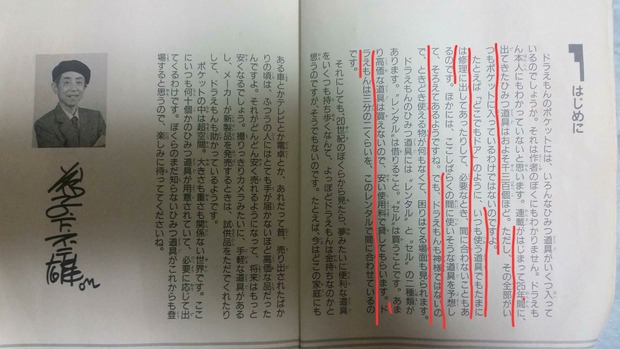 はじめに
ドラえもんのポケットには、いろんなひみつ道具がいくつ入って
いるのでしょうか。それは作者のぼくにもわかりません。ドラえも
ん本人にもわかっていないと思います。連載がはじまって25年間に、
出てきたひみつ道具はおよそ千三百個ほど。ただし、その全部がい
つもポケットに入っているわけではないのですよ。
たとえば「どこでもドア」のように、いつも使う道具でもたまに
は修理に出してあったりして、必要なときに間に合わないこともあ
るのです。ほかには、ここしばらくの間に使いそうな道具を予想し
て、そろえてあるようですね。でも、ドラえもんも神様ではないの
で、ときどき使える物が何もなくて、困りはてる場面も見られます。
ドラえもんのひみつ道具には〝レンタル〟と〝セル〟の二種類が
あります。〝レンタル〟は借りること。〝セル〟は買うことです。あま
り高価な道具は買えないので、安い使用料で貸してもらいます。ド
ラえもんは三分の二くらいを、このレンタルで間に合わせているの
です。
それにしても、20世紀のぼくらから見たら、夢みたいに便利な道具
をいくつも持ち歩くなんて、よっぽどドラえもんは金持ちなのかと
思うのですが、そうでもないのです。たとえば、今はどこの家庭にも
ある車とかテレビとか電卓とか、あれだって昔、売り出されたばか
りの頃は、ふつうの人にはとても手が届かないほど高価な品だった
んですよ。それがどんどん安く作れるようになって、将来はもっと
安くなるでしょう。撮りっきりカメラみたいに、手軽な道具がある
し、メーカーが新製品を発売するときは、試作品をただでくれたり
して、ドラえもんも助かっているようです。
ポケットの中は超空間。大きさも重さも関係ない世界です。ここ
にいつも何十個かのひみつ道具が用意されていて、必要に応じて出
てくるわけです。ぼくらのまだ知らないひみつ道具がこれからも登
場すると思うので、楽しみに待っててくださいね。
藤子・F・不二雄